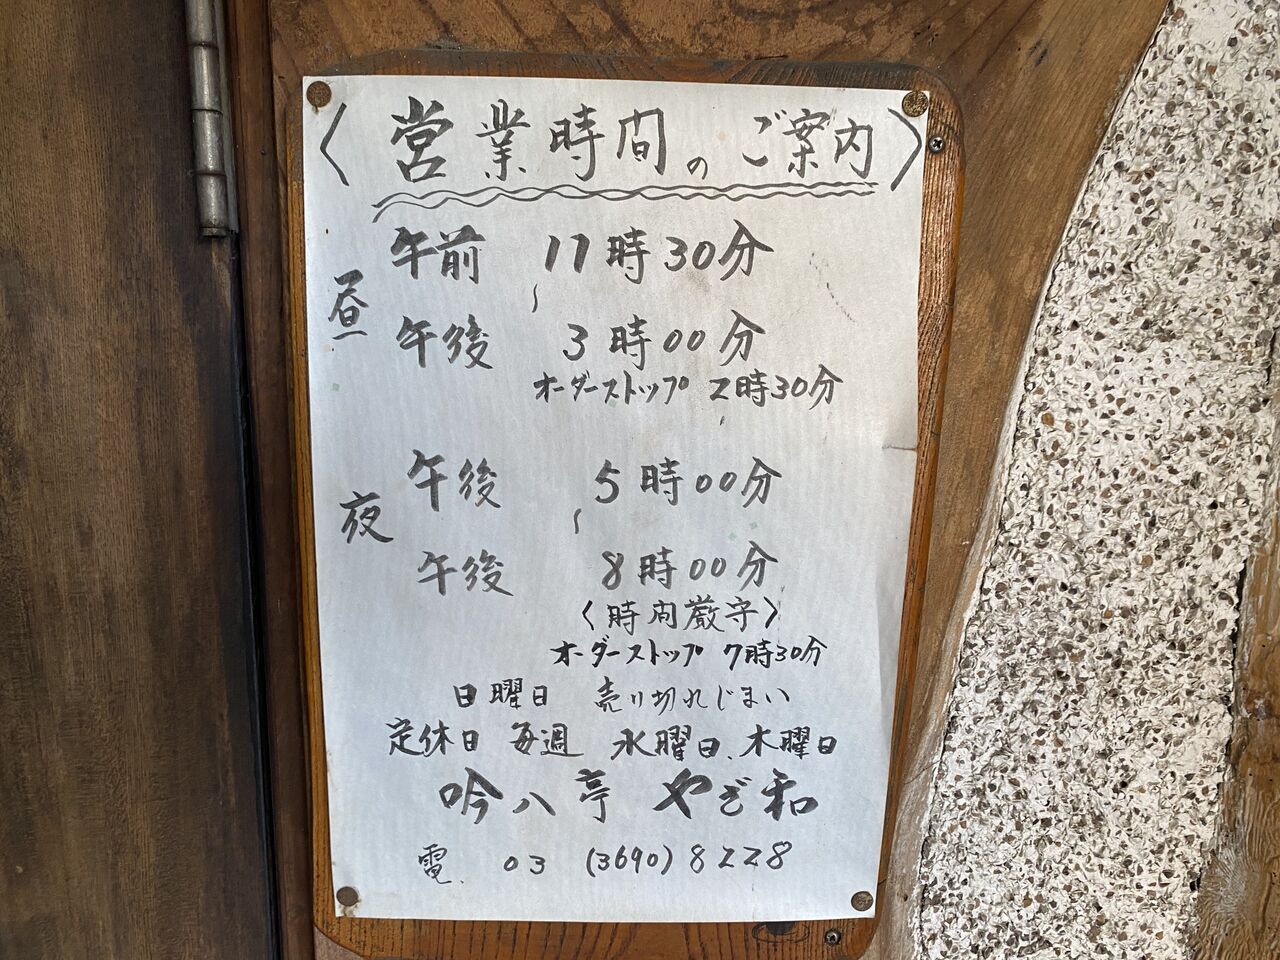 〈営業時間のご案内〉
昼
午前 11時30分
〜
午後 3時00分
オーダーストップ 2時30分
夜
午後 5時00分
〜
午後 8時00分
〈時間厳守〉
オーダーストップ 7時30分
日曜日 売り切れじまい
定休日 毎週 水曜日、木曜日
吟八亭 やざ和
電. 03 (3690) 8228